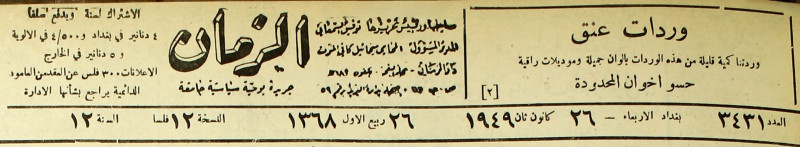 وردات عنق
وردتنا كمية قليلة من هذه الوردات بالوان جميلة وموديلات راقية
حسو اخوان المحدودة
[٢]
صاحبها ورئيس تحريرها توفيق السمعاني
المدير المسؤول المحامي
الزمان
جريدة يومية سياسية جامعة
الاشتراك لسنة ويدفع سلفا
٤ دنانير في بغداد و ٤/٥٠٠ في الالوية
و ٥ دنانير في الخارج
الاعلانات ٣٠٠ فلس عن العقدين العامود
الدائمية يراجع بشأنها الادارة
العدد ٣٤٣١ بغداد الاربعاء — ٢٦ كانون ثان ١٩٤٩ ٢٦ ربيع الاول ١٣٦٨ النسخة ١٢ فلسا السنة ١٢